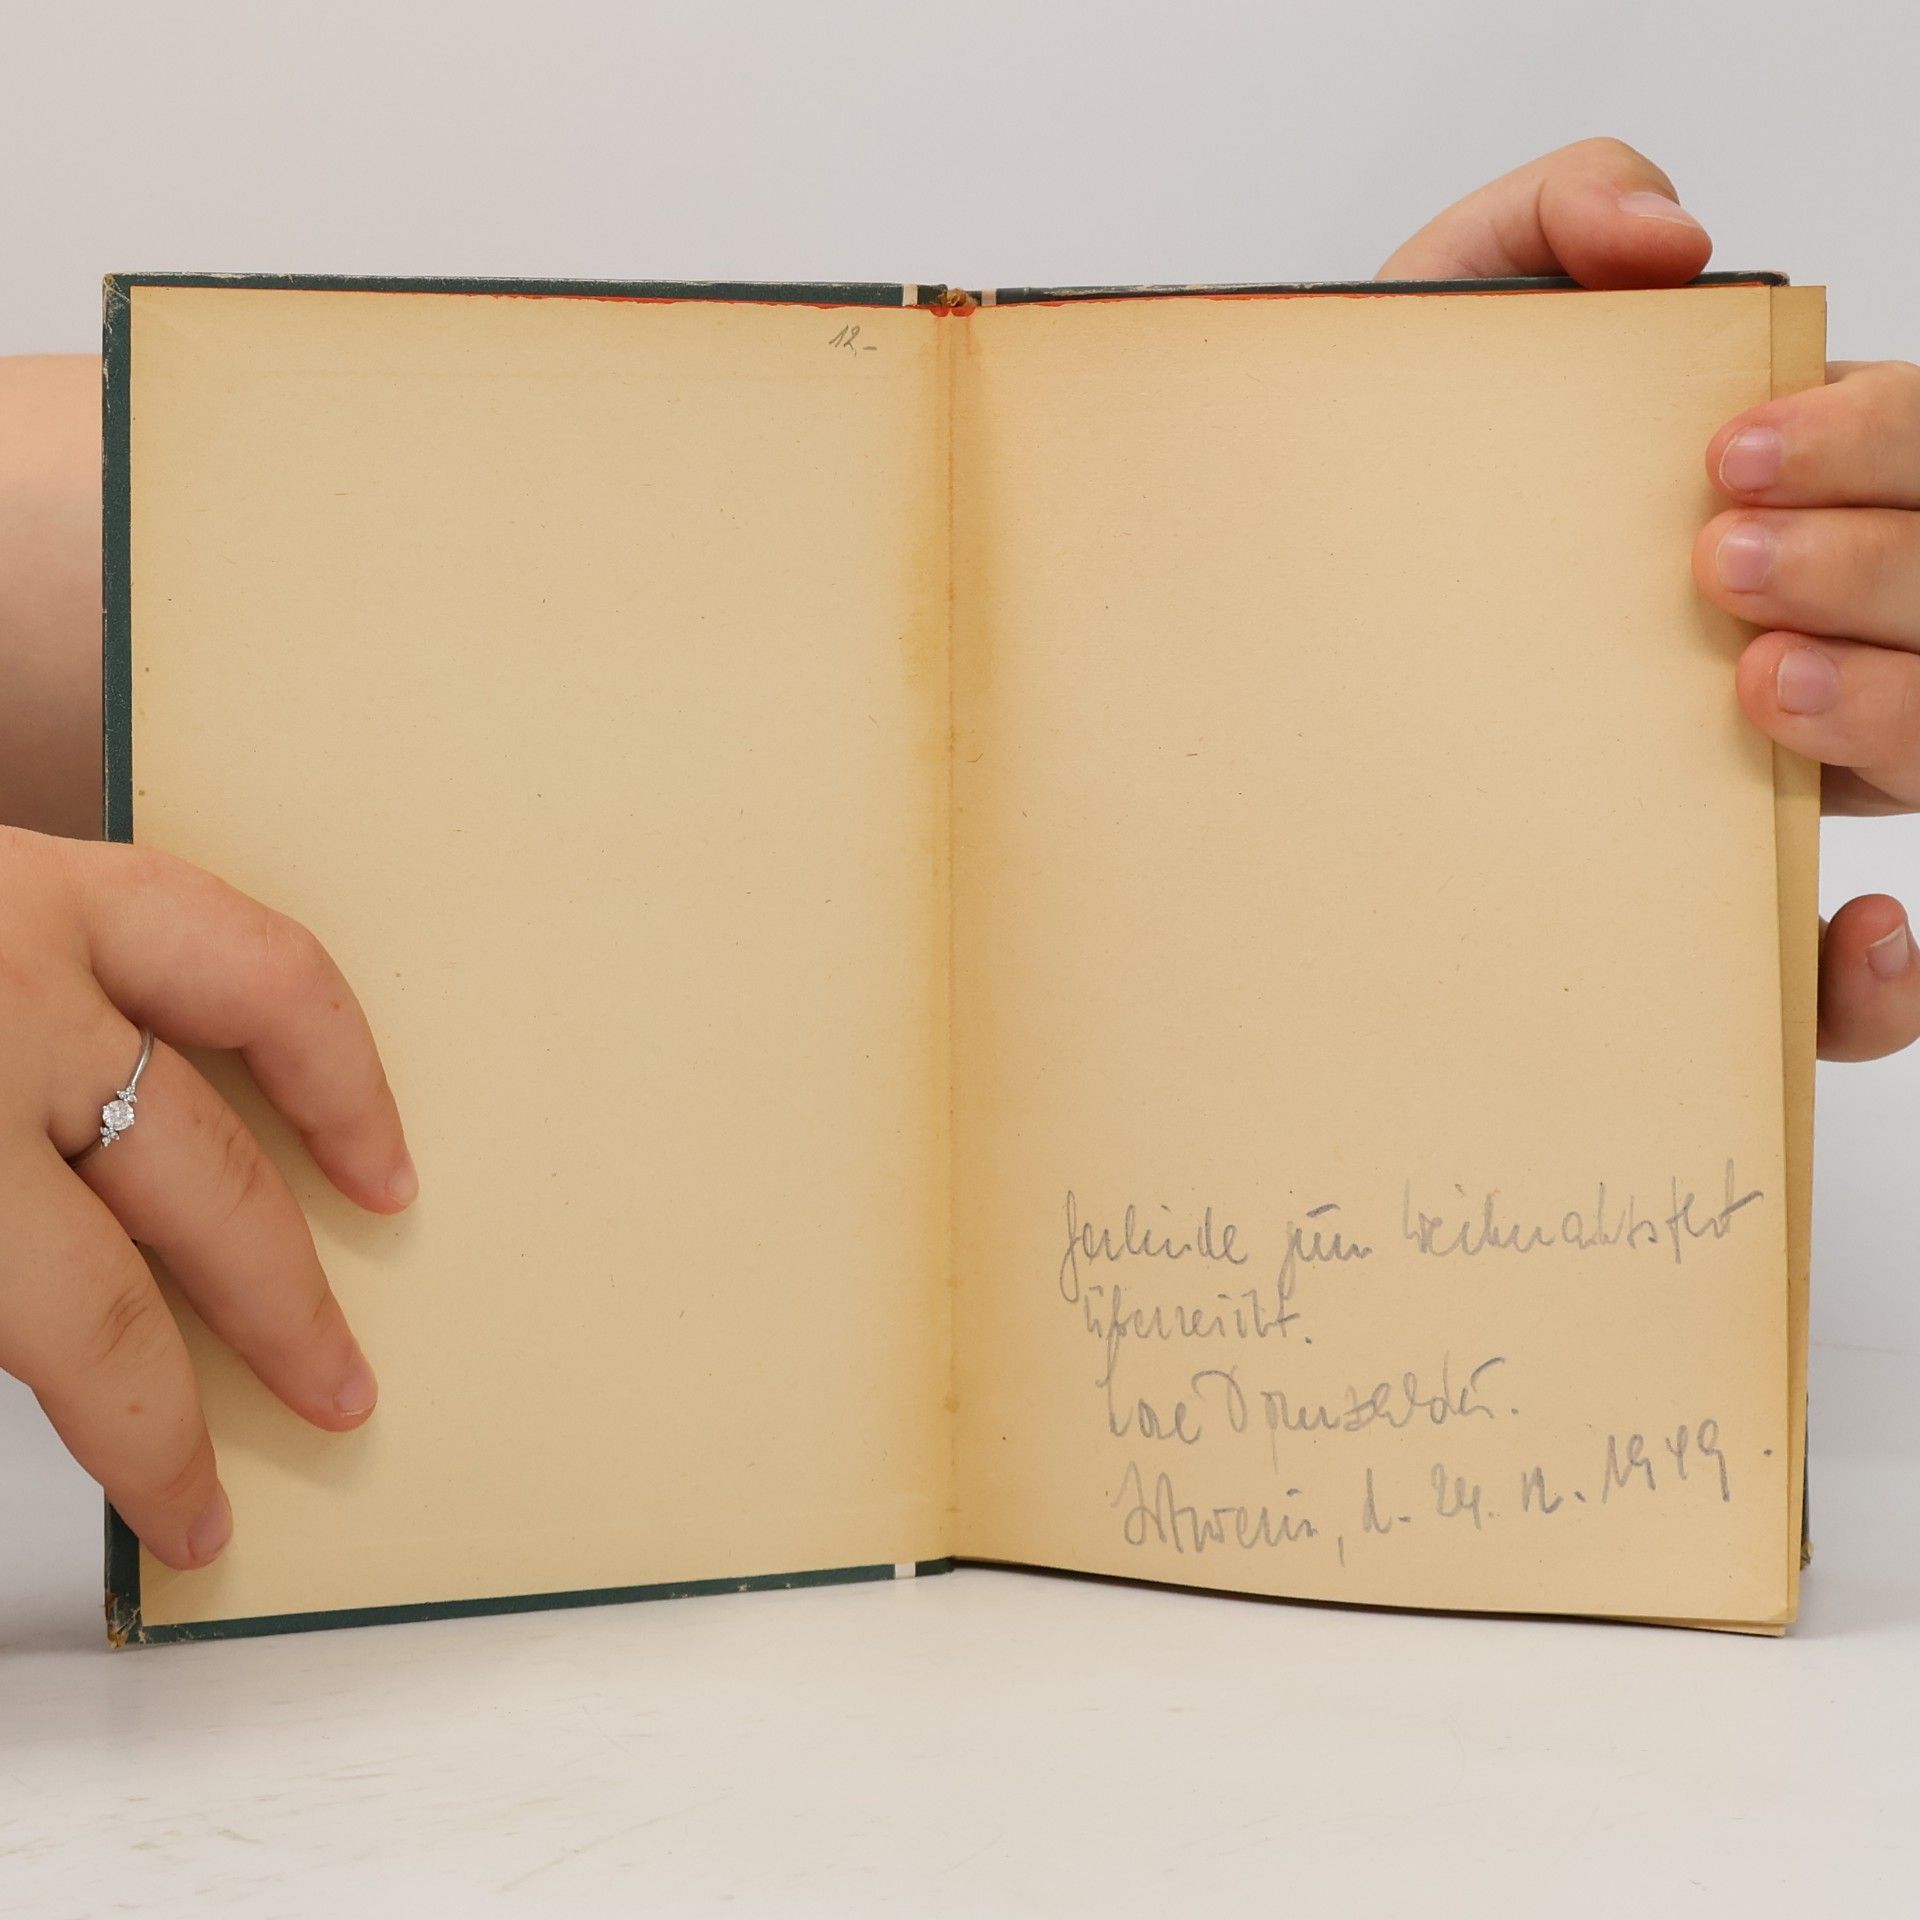 12,-
Gerlinde zum Weihnachtsfest
überreicht.
Lore
Schwerin, d. 24. 12. 1949.